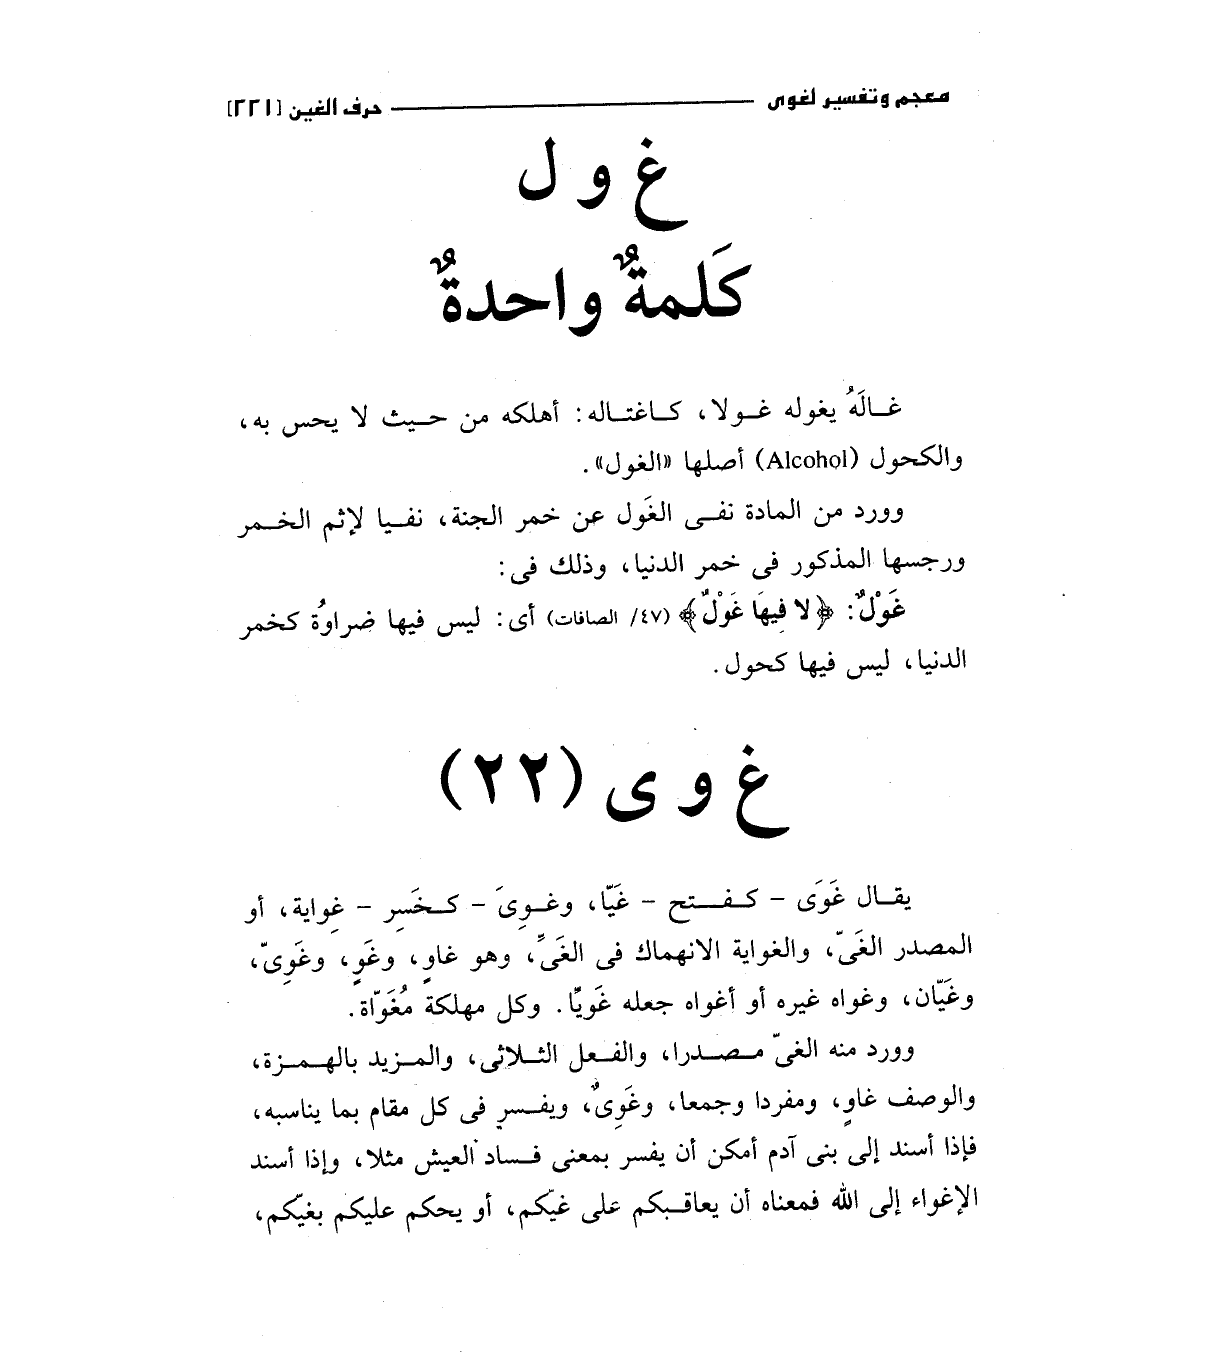 معجم وتفسير لغوى حرف الغين [٢٢١]
غ و ل
كَلمةٌ واحدةٌ
غـالَهُ يغوله غـولا، كـاغتـاله: أهلكه من حـيث لا يحس به،
والكحول (Alcohol) أصلها «الغول».
وورد من المادة نفـى الغَول عن خمر الجنة، نفـيا لإثم الخـمر
ورجسها المذكور فى خمر الدنيا، وذلك فى:
غَوْلٌ: ﴿لا فِيهَا غَوْلٌ﴾ (٤٧/ الصافات) أى: ليس فيها ضراوُة كخمر
الدنيا، ليس فيها كحول.
غ و ى (٢٢)
يقـال غَوَى - كـفـتح - غَيّا، وغـوِىَ - كـخَسِر - غِواية، أو
المصدر الغَىّ، والغواية الانهماك فى الغَىِّ، وهو غاوٍ، وغَوٍ، وغَوِىّ،
وغَيّان، وغواه غيره أو أغواه جعله غَويًّا. وكل مهلكة مُغَوّاة.
وورد منه الغىّ مـصـدرا، والفـعل الثـلاثى، والمـزيد بالهـمـزة،
والوصف غاوٍ، ومفردا وجمعا، وغَوِىٌ، ويفـسر فى كل مقام بما يناسبه،
فإذا أسند إلى بنى آدم أمكن أن يفسر بمعنى فـساد العيش مثلا، وإذا أسند
الإغواء إلى الله فمعناه أن يعاقـبكم على غيّكم، أو يحكم عليكم بغيّكم،